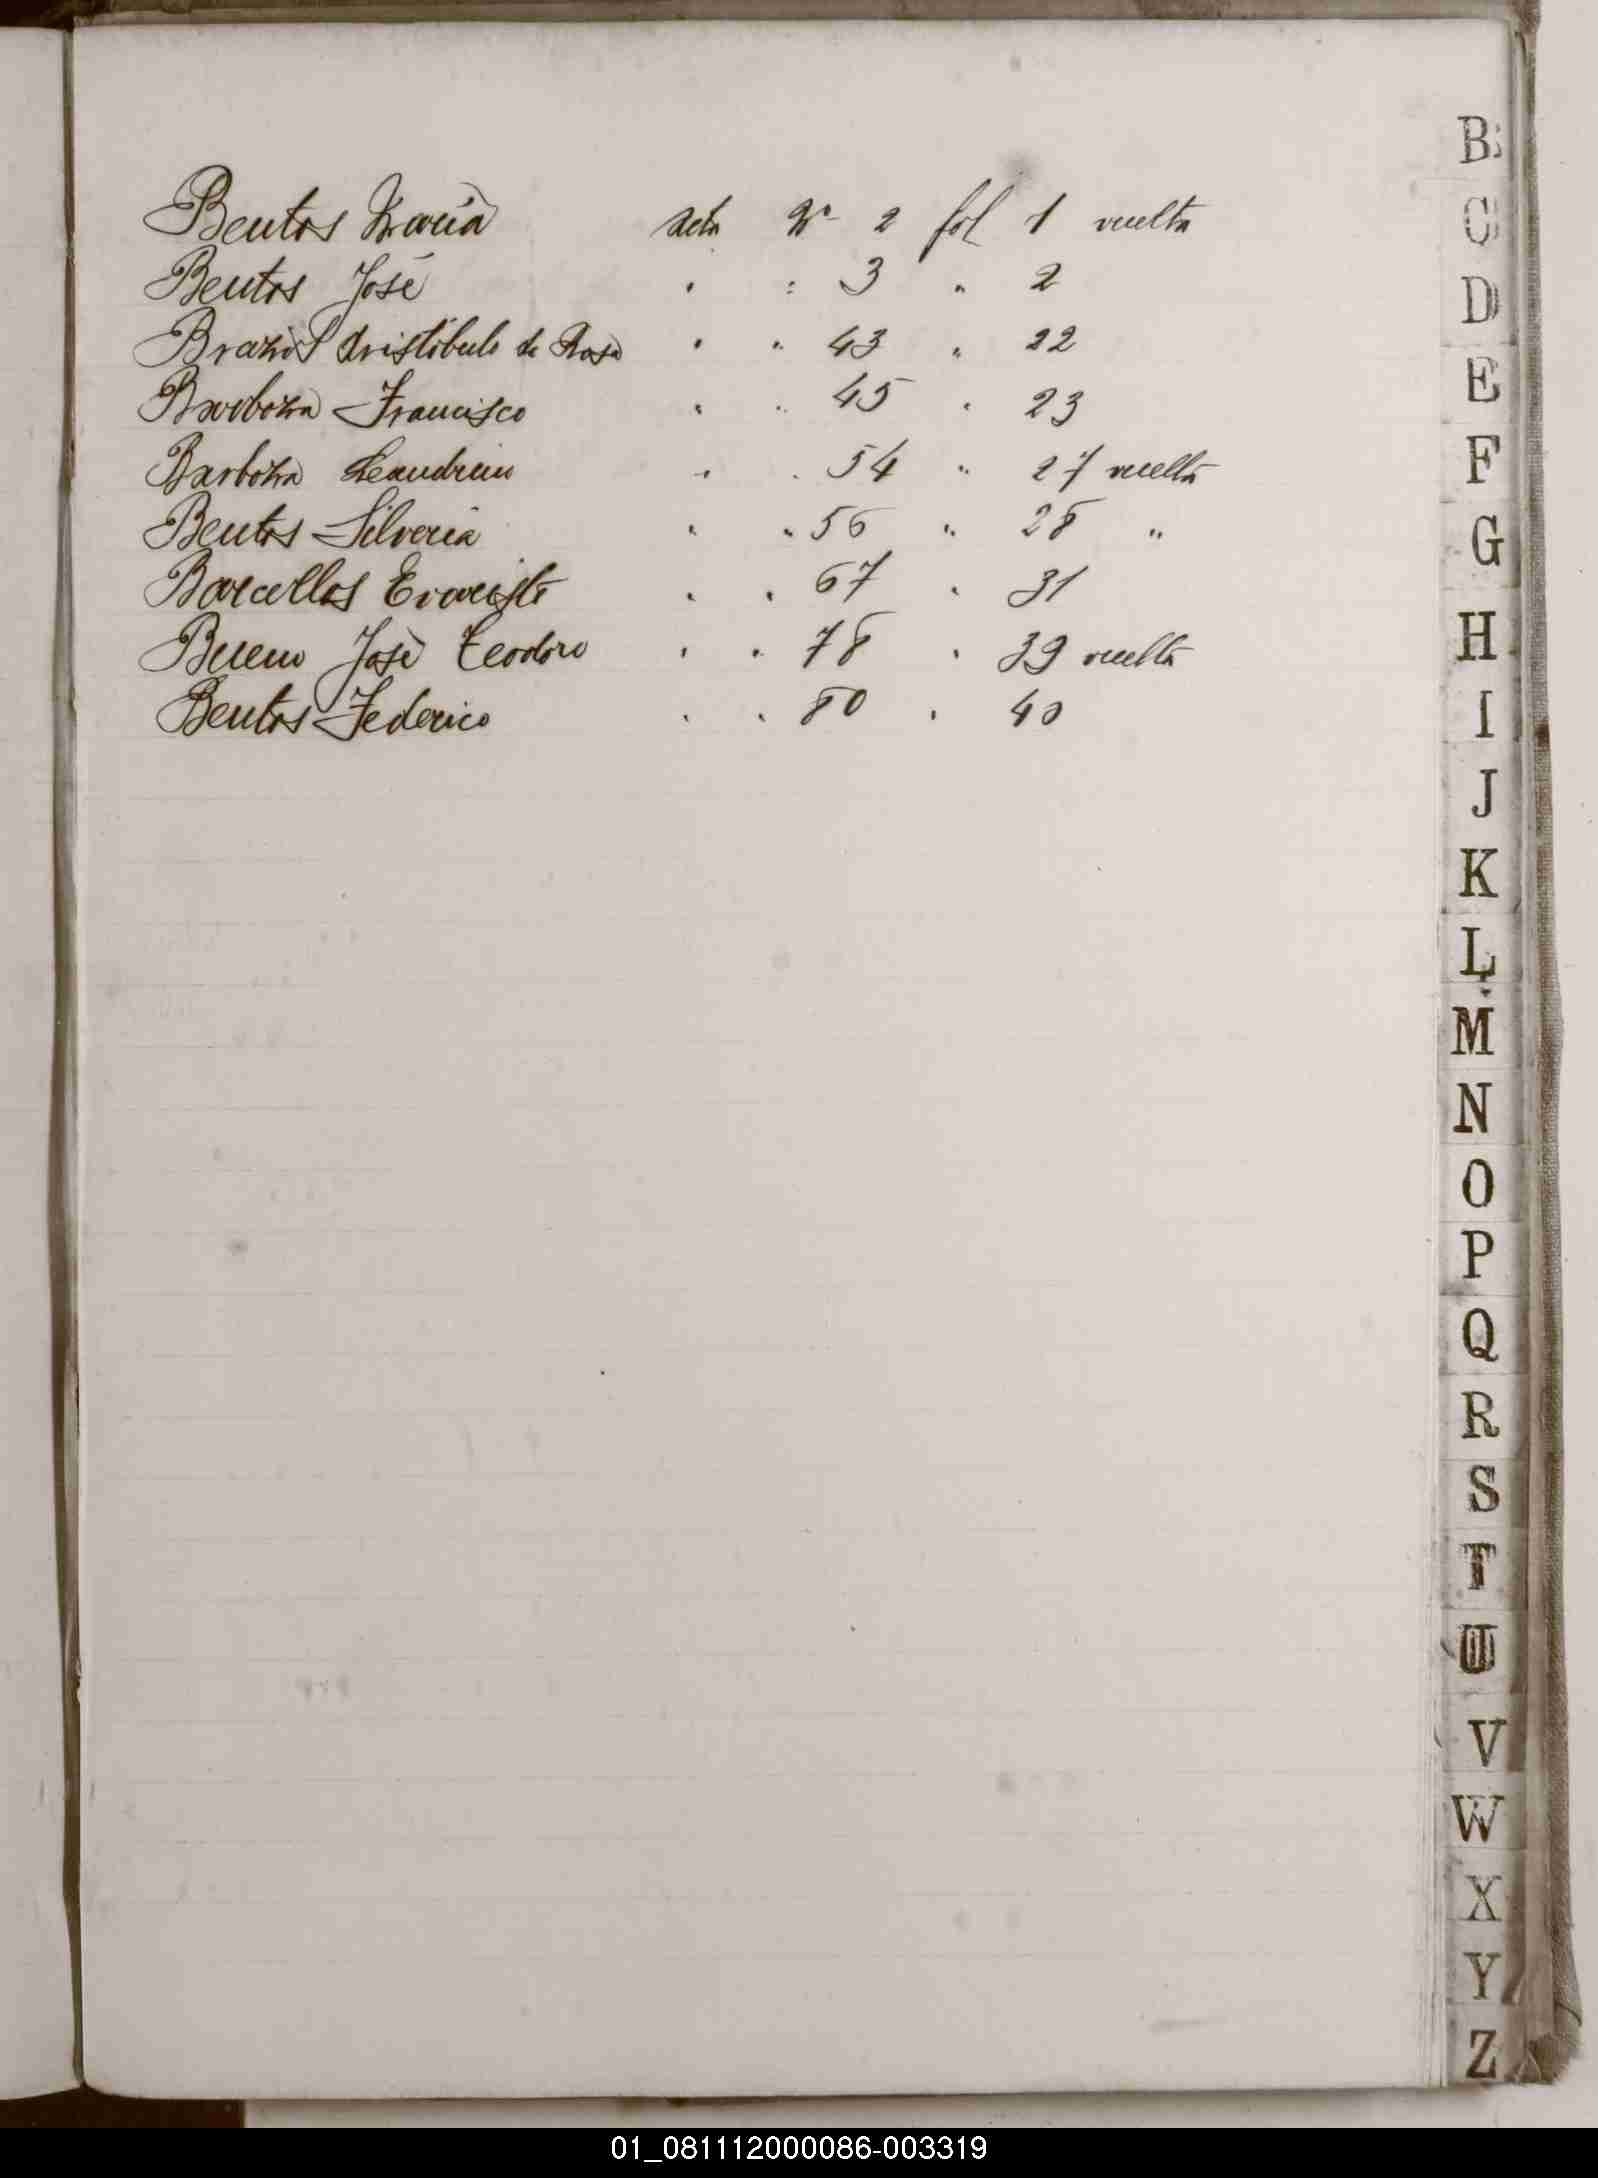 Bentos María Acta Nº 2 fol 1 vuelta
Bentos José " " 3 " 2
Brazil Aristóbulo de Rosa " " 43 " 22
Barboza Francisco " " 45 " 23
Barboza Leandrina " " 54 " 27 vuelta
Bentos Silveria " " 56 " 28 "
Barcellos Evaristo " " 67 " 31
Bueno José Teodoro " " 78 " 39 vuelta
Bentos Federico " " 80 " 40
B
C
D
E
F
G
H
I
J
K
L
M
N
O
P
Q
R
S
T
U
V
W
X
Y
Z
01_081112000086-003319